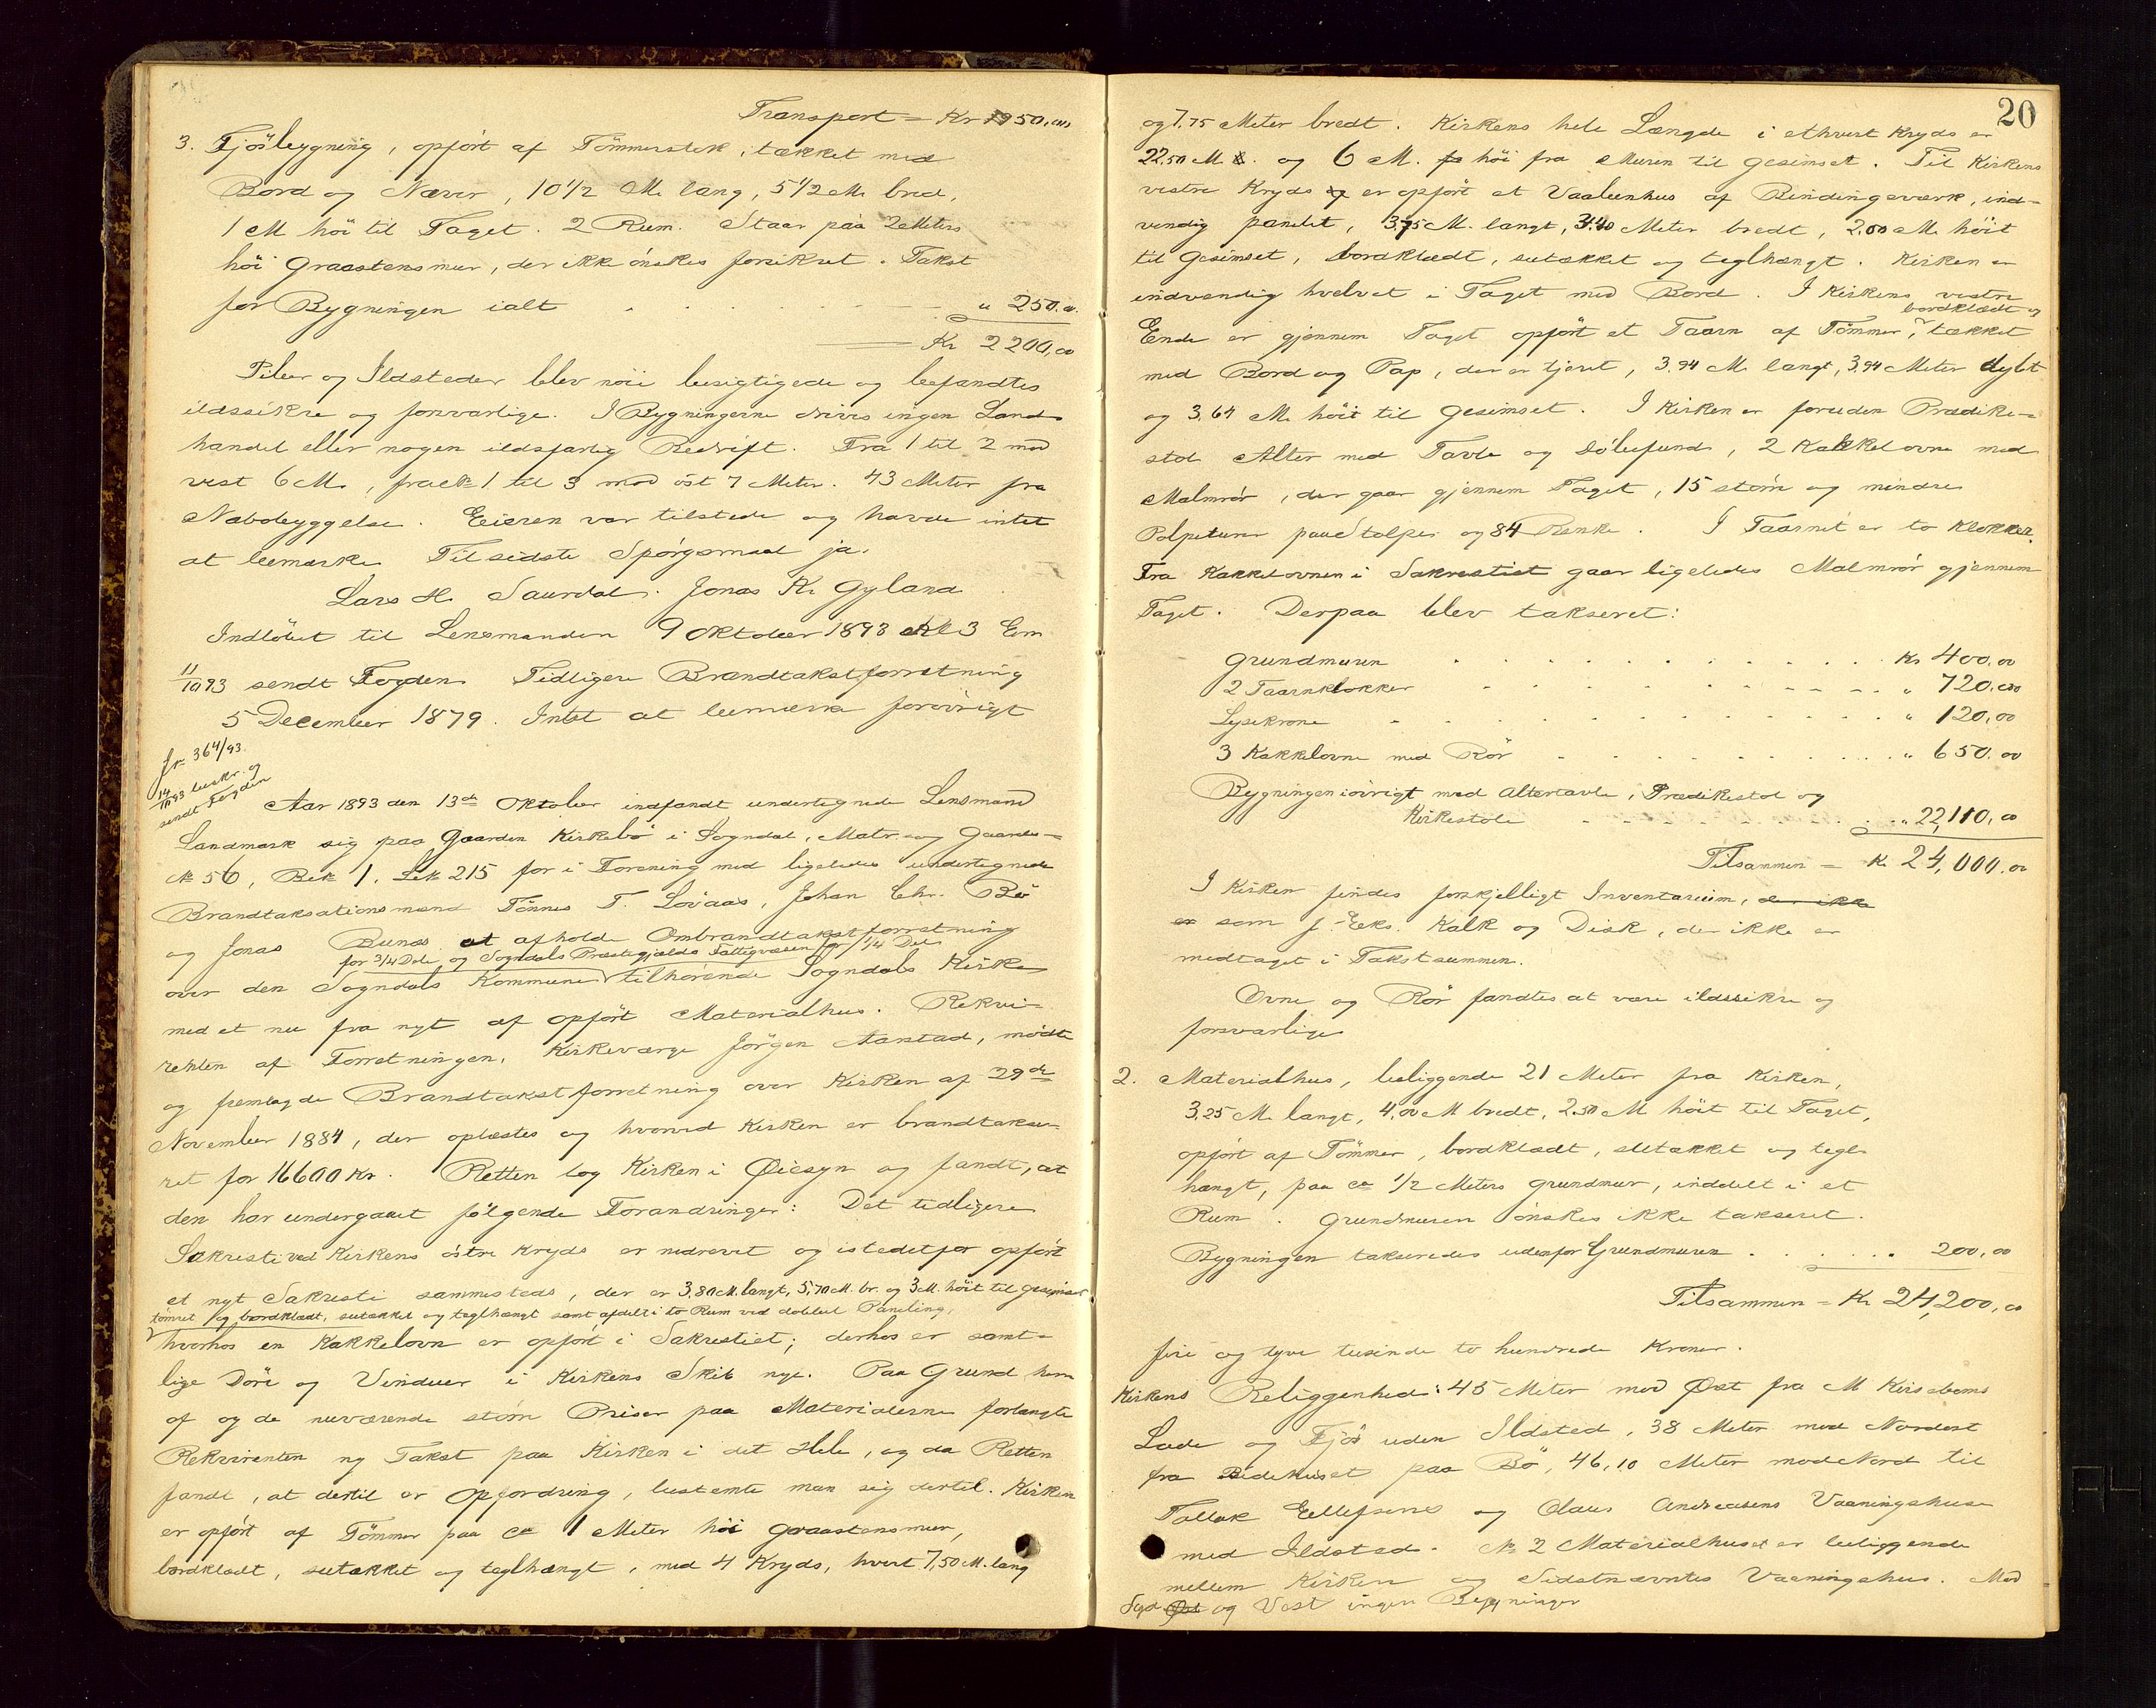 Transport = Kr 1950,00
3. Fjösbygning, opfört af Tömmerstok, tækket med
Bord og Næver, 10 1/2 M. lang, 5 1/2 M. bred,
1 M höi til Taget. 2 Rum. Staar paa 2 Meters
höi Graastensmur, der ikke önskes forsikret. Takst
for Bygningen ialt " 250.00
Kr 2200,00
Piber og Ildsteder blev nöie besigtigede og befandtes
ildssikre og forsvarlige. I Bygningerne drives ingen Land-
handel eller nogen ildsfarlig Bedrift. Fra 1 til 2 mod
vest 6 M., fra № 1 til 3 mod öst 7 Meter. 43 Meter fra
Nabobyggelse. Eieren var tilstede og havde intet
at bemærke Til sidste Spörgsmaal ja.
Lars H. Saurdal. Jonas K. Gyland
Indlöbet til Lensmanden 9 Oktober 1893 Kl 3 Em
11/10 93 sendt Fogden. Tidligere Brandtakstforretning
5 December 1879. Intet at bemærke forövrigt
Jr. 364/93.
14/10 93 beskr. og
sendt Fogden
Aar 1893 den 13de Oktober indfandt undertegnede Lensmand
Landmark sig paa Gaarden Kirkebö i Sogndal, Matr. og Gaards-
№ 56, B№ 1. L№ 215 for i Forening med ligeledes undertegnede
Brandtaksationsmænd Tönnes T. Lövaas, Johan Chr. Bö
og Jonas Bunæs at afholde Ombrandtakstforretning
for 3/4 Dele og Sogndals Præstegjælds Fattigvæsen for 1/4 Del
over den Sogndals Kommune tilhörende Sogndals Kirke
med et nu fra nyt af opfört Materialhus. Rekvi-
renten af Forretningen, Kirkeværge Jörgen Aanstad, mödte
og fremlagde Brandtakstforretning over Kirken af 29de
November 1884, der oplæstes og hvorved Kirken er brandtakse-
ret for 16600 Kr. Retten tog Kirken i Øiesyn og fandt, at
den har undergaaet fölgende Forandringer: Det tidligere
Sakresti ved Kirkens östre Kryds er nedrevet og istedetfor opfört
et nyt Sakresti sammesteds, der er 3,80 M. langt, 5,70 M. br. og 3 M. höit til gesimset
tömret og bordklædt, sutækket og teglhængt samt afdelt i to Rum ved dobbel Paneling,
hvorhos en Kakkelovn er opfört i Sakrestiet; derhos er samt-
lige Döre og Vinduer i Kirkens Skib nye. Paa Grund heraf
af og de nuværende större Priser paa Materialerne forlangte
Rekvirenten ny Takst paa Kirken i det Hele, og da Retten
fandt, at dertil er Opfordring, bestemte man sig dertil. Kirken
er opfört af Tömmer paa ca 1 Meter höi Graastensmur,
bordklædt, sutækket og teglhængt, med 4 Kryds, hvert 7,50 M. lang
20
og 7,75 Meter bredt. Kirkens hele Længde i ethvert Kryds er
22,50 M. og 6 M. höi fra Muren til Gesimset. Til Kirkens
vestre Kryds er opfört et Vaabenhus af Bindingsværk, ind-
vendig panelet, 3,75 M. langt, 3.40 Meter bredt, 2,00 M. höit
til Gesimset, bordklædt, sutækket og teglhængt. Kirken er
indvendig hvelvet i Taget med Bord. I Kirkens vestre
bordklædt og
Ende er gjennem Taget opfört et Taarn af Tömmer, tækket
med Bord og Pap, der er tjæret, 3,94 M. langt, 3,94 Meter dybt
og 3,64 M. höit til Gesimset. I Kirken er foruden Prædike-
stol Alter med Tavle og Döbefund, 2 Kakkelovne med
Malmrör, der gaar gjennem Taget, 15 större og mindre
Polpeturer paa Stolper og 84 Benke. I Taarnet er to Klokker.
Fra Kakkelovnen i Sakrestiet gaar ligeledes Malmrör gjennem
Taget. Derpaa blev takseret:
Grundmuren Kr 400,00
2 Taarnklokker " 720,00
Lysekrone " 120,00
3 Kakkelovne med Rör " 650.00
Bygningen iövrigt med Altertavle, Prædikestol og
Kirkestole " 22,110,00
Tilsammen = Kr 24,000.00
I Kirken findes forskjelligt Inventarium, der ikke
er som f. Eks. Kalk og Disk, der ikke er
medtaget i Takstsummen.
Ovne og Rör fandtes at være ildssikre og
forsvarlige
2. Materialhus, beliggende 21 Meter fra Kirken,
3,25 M. langt, 4,00 M bredt, 2,50 M höit til Taget,
opfört af Tömmer, bordklædt, sutækket og tegl-
hængt, paa ca 1/2 Meters Grundmur, inddelt i et
Rum. Grundmuren önskes ikke takseret.
Bygningen takseredes udenfor Grundmuren 200,00
Tilsammen = Kr 24,200,00
fire og tyve tusinde to hundrede Kroner.
Kirkens Beliggenhed: 45 Meter mod Øst fra M Kirseboms
Lade og Fjös uden Ildsted, 38 Meter mod Nordöst
fra Bedehuset paa Bö, 46,10 Meter mod Nord til
Tallak Eellefsens og Olaus Andreasens Vaaningshuse
med Ildsted. № 2 Materialhuset er beliggende
mellem Kirken og Sidstnævntes Vaaningshus. Mod
Syd Øst og Vest ingen Bygninger